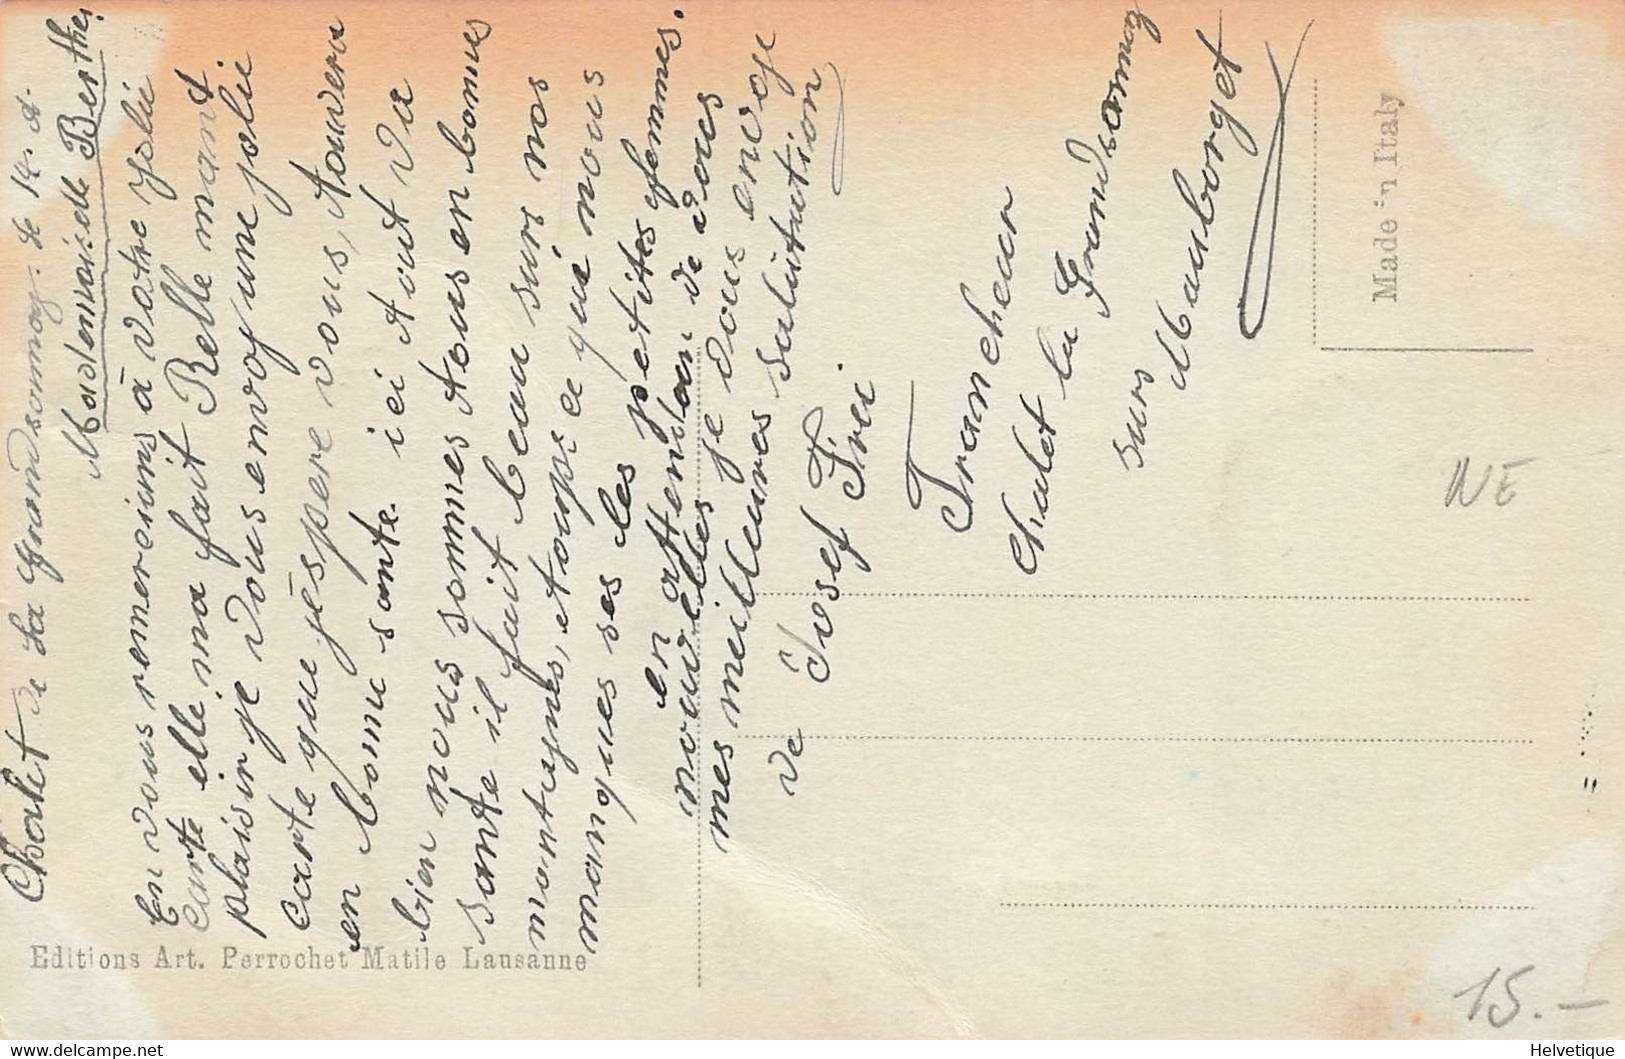 Chalet de La Grandsonnaz. le 14. A.
Mademoiselle Berthe,
En vous remerciant à votre Jolie
Carte elle ma fait Belle mant
plaisir je vous envoy une jolie
carte que jéspere vous, trouvera
en bonne santé. ici tout va
bien nous sommes tous en bonnes
sante il fait beau surs nos
montagnes, et toupz ce qui nous
manques ses les petites femmes.
en attendan de vous
nouvelles je vous envoje
mes meilleures salutation
de Josef Frei
Trancheur
chalet la Grandsonnaz
surs Mauborget
Made in Italy
Editions Art. Perrochet Matile Lausanne
NE
15.-
www.delcampe.net
Helvetique